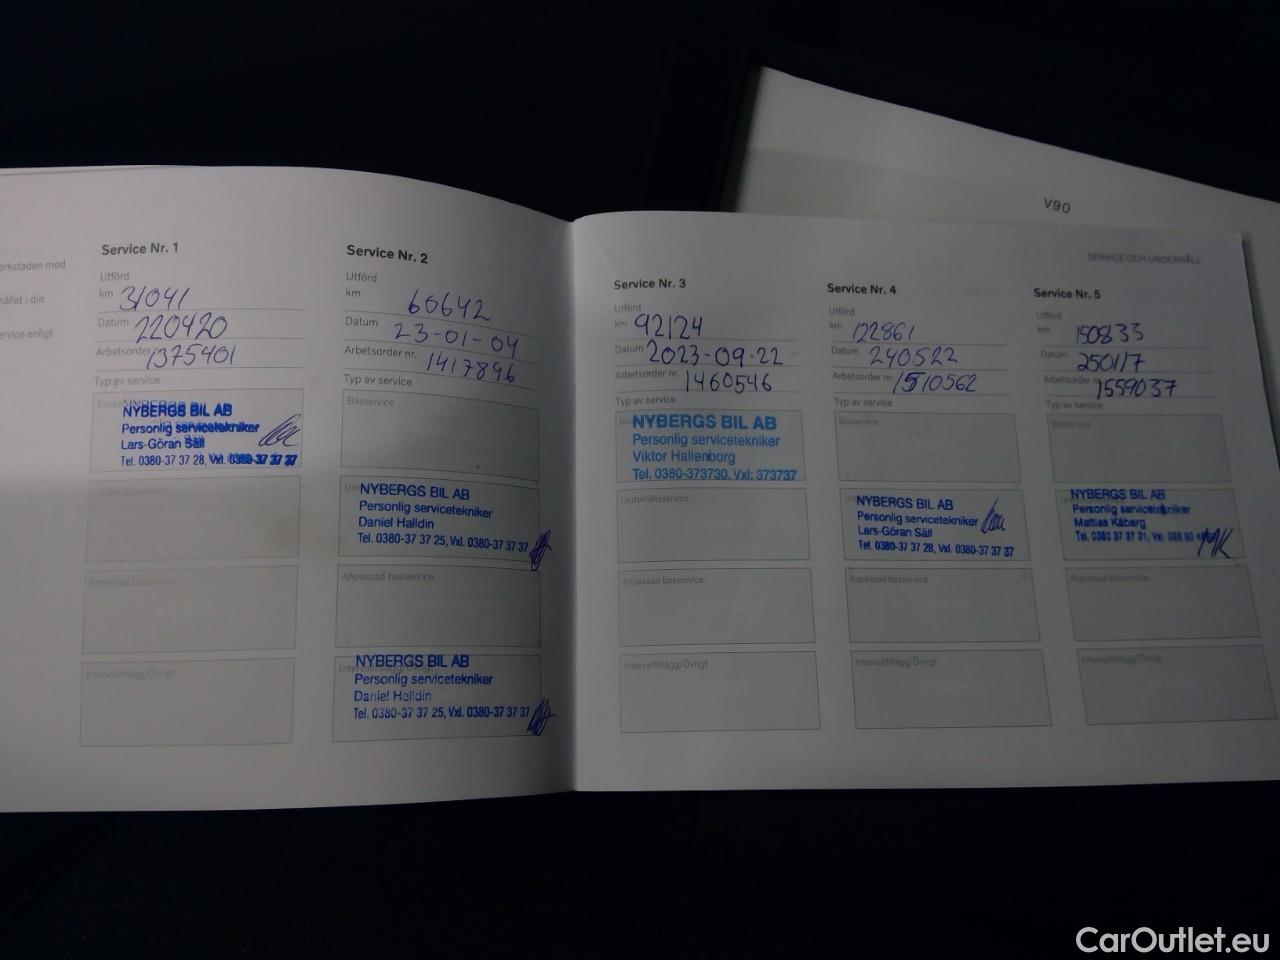 V90
SERVICE OCH UNDERHÅLL
erkstaden med
hållet i din
ervice enligt
Service Nr. 1
Utförd
km 31041
Datum 220420
Arbetsorder nr. 1375401
Typ av service
NYBERGS BIL AB
Personlig servicetekniker
Lars-Göran Säll
Tel. 0380-37 37 28, Vxl. 0380-37 37 37
Intervalltillägg/Övrigt
Service Nr. 2
Utförd
km 60642
Datum 23-01-04
Arbetsorder nr. 1417896
Typ av service
Basservice
NYBERGS BIL AB
Personlig servicetekniker
Daniel Halldin
Tel. 0380-37 37 25, Vxl. 0380-37 37 37
Anpassad basservice
Intervalltillägg/Övrigt
NYBERGS BIL AB
Personlig servicetekniker
Daniel Halldin
Tel. 0380-37 37 25, Vxl. 0380-37 37 37
Service Nr. 3
Utförd
km 92124
Datum 2023-09-22
Arbetsorder nr. 1460546
Typ av service
NYBERGS BIL AB
Personlig servicetekniker
Viktor Hallenborg
Tel. 0380-373730, Vxl: 373737
Underhållsservice
Anpassad basservice
Intervalltillägg/Övrigt
Service Nr. 4
Utförd
km 122861
Datum 240522
Arbetsorder nr. 1510562
Typ av service
Basservice
NYBERGS BIL AB
Personlig servicetekniker
Lars-Göran Säll
Tel. 0380-37 37 28, Vxl. 0380-37 37 37
Anpassad basservice
Intervalltillägg/Övrigt
Service Nr. 5
Utförd
km 150833
Datum 250117
Arbetsorder 1559037
Typ av service
Basservice
NYBERGS BIL AB
Personlig servicetekniker
Mattias Kåberg
Tel. 0380 37 37 31,
MK
Anpassad basservice
Intervalltillägg/Övrigt
CarOutlet.eu